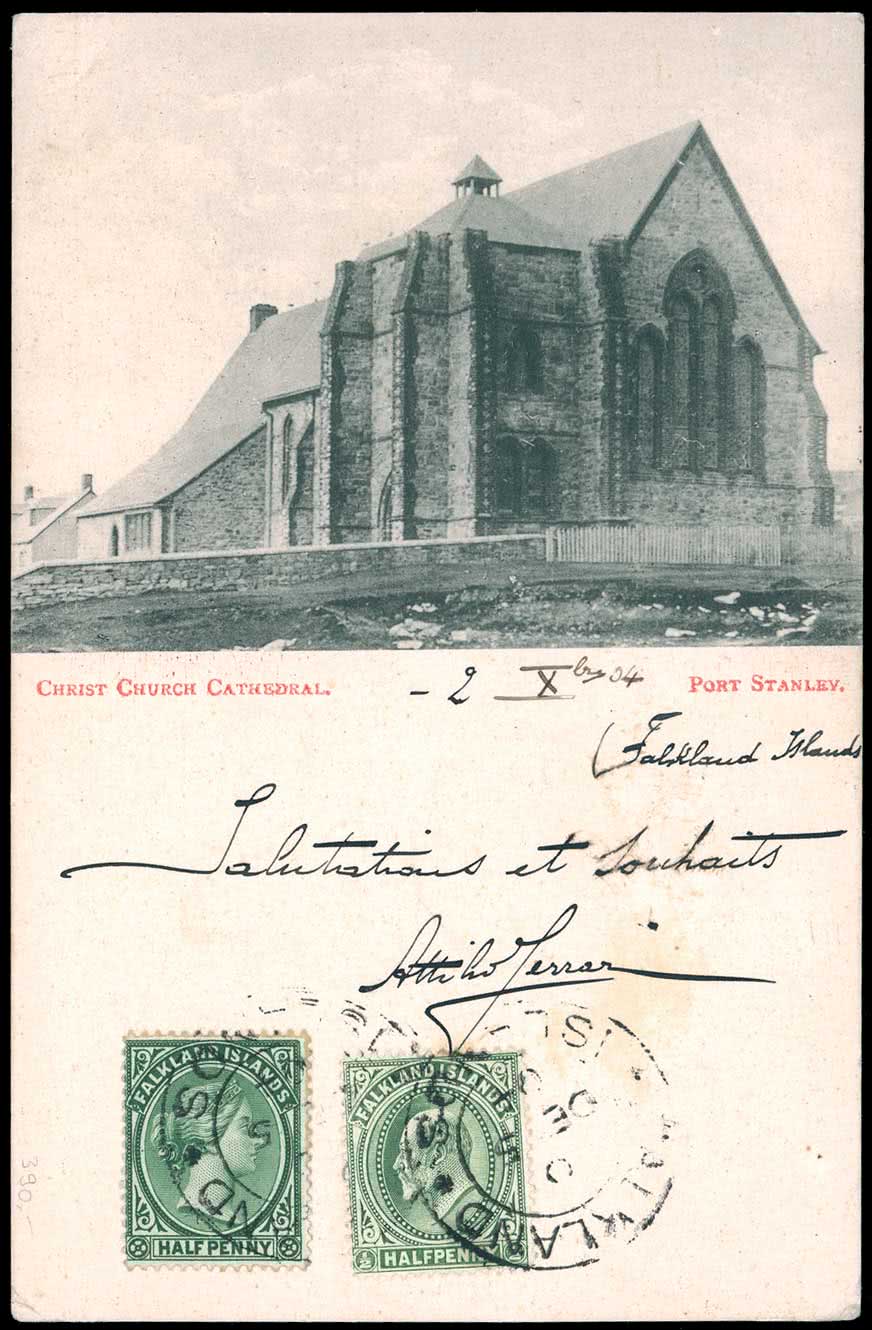 CHRIST CHURCH CATHEDRAL.
- 2 Xbre 04
PORT STANLEY.
(Falkland Islands
Salutations et souhaits
Attilio Ferrari
FALKLAND ISLANDS
HALFPENNY
FALKLAND ISLANDS
½ HALFPENNY
FALKLAND ISL
DE
390,-